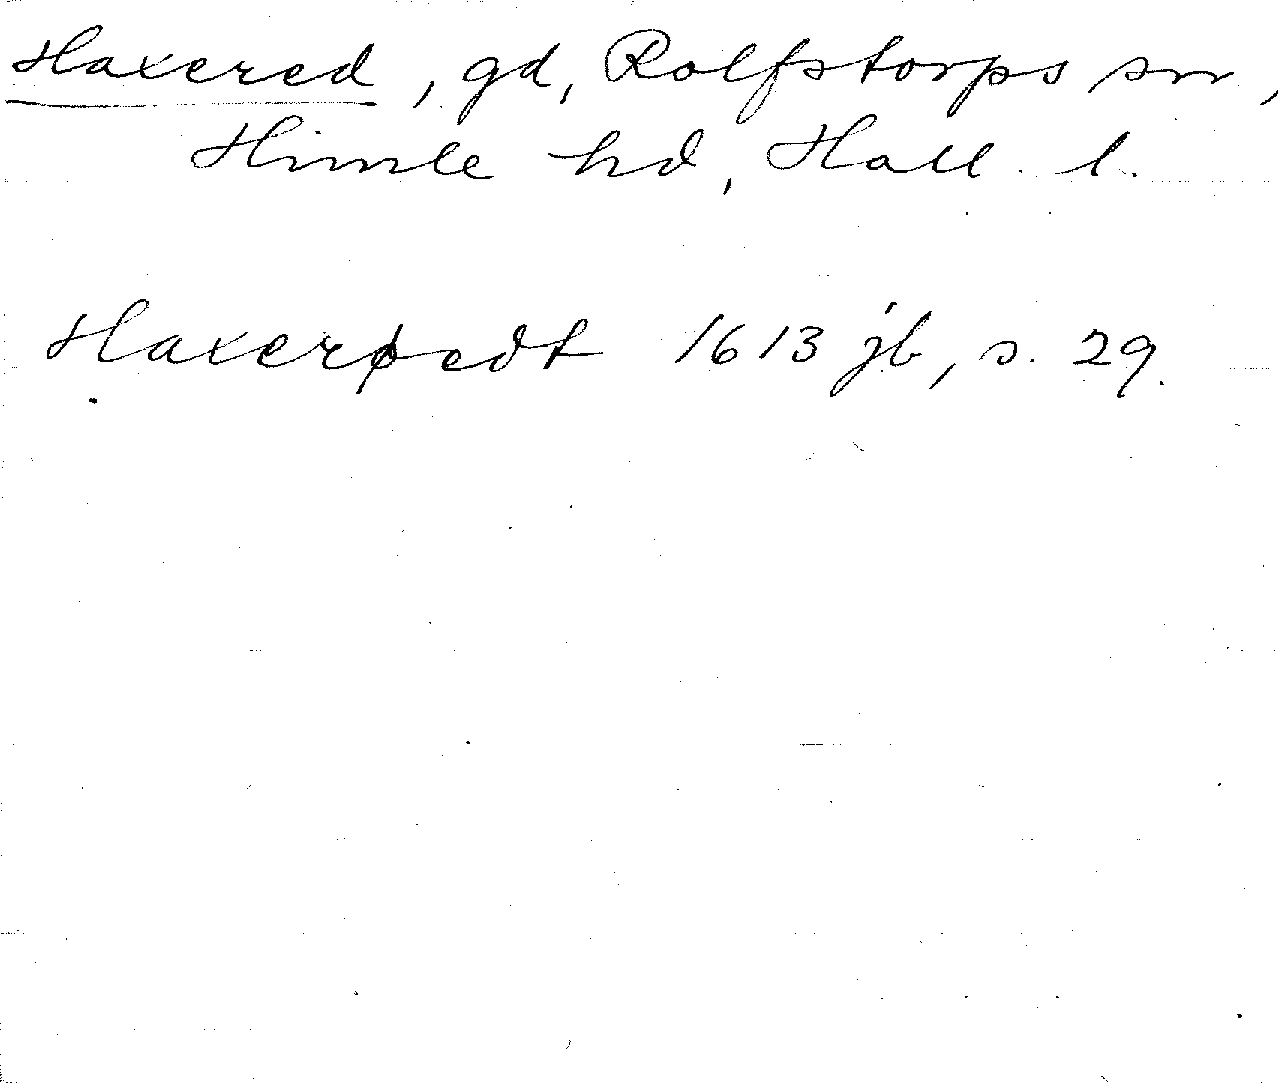 Haxered, gd, Rolfstorps sn,
Himle hd, Hall. l.
Haxerødt 1613 jb, s. 29.